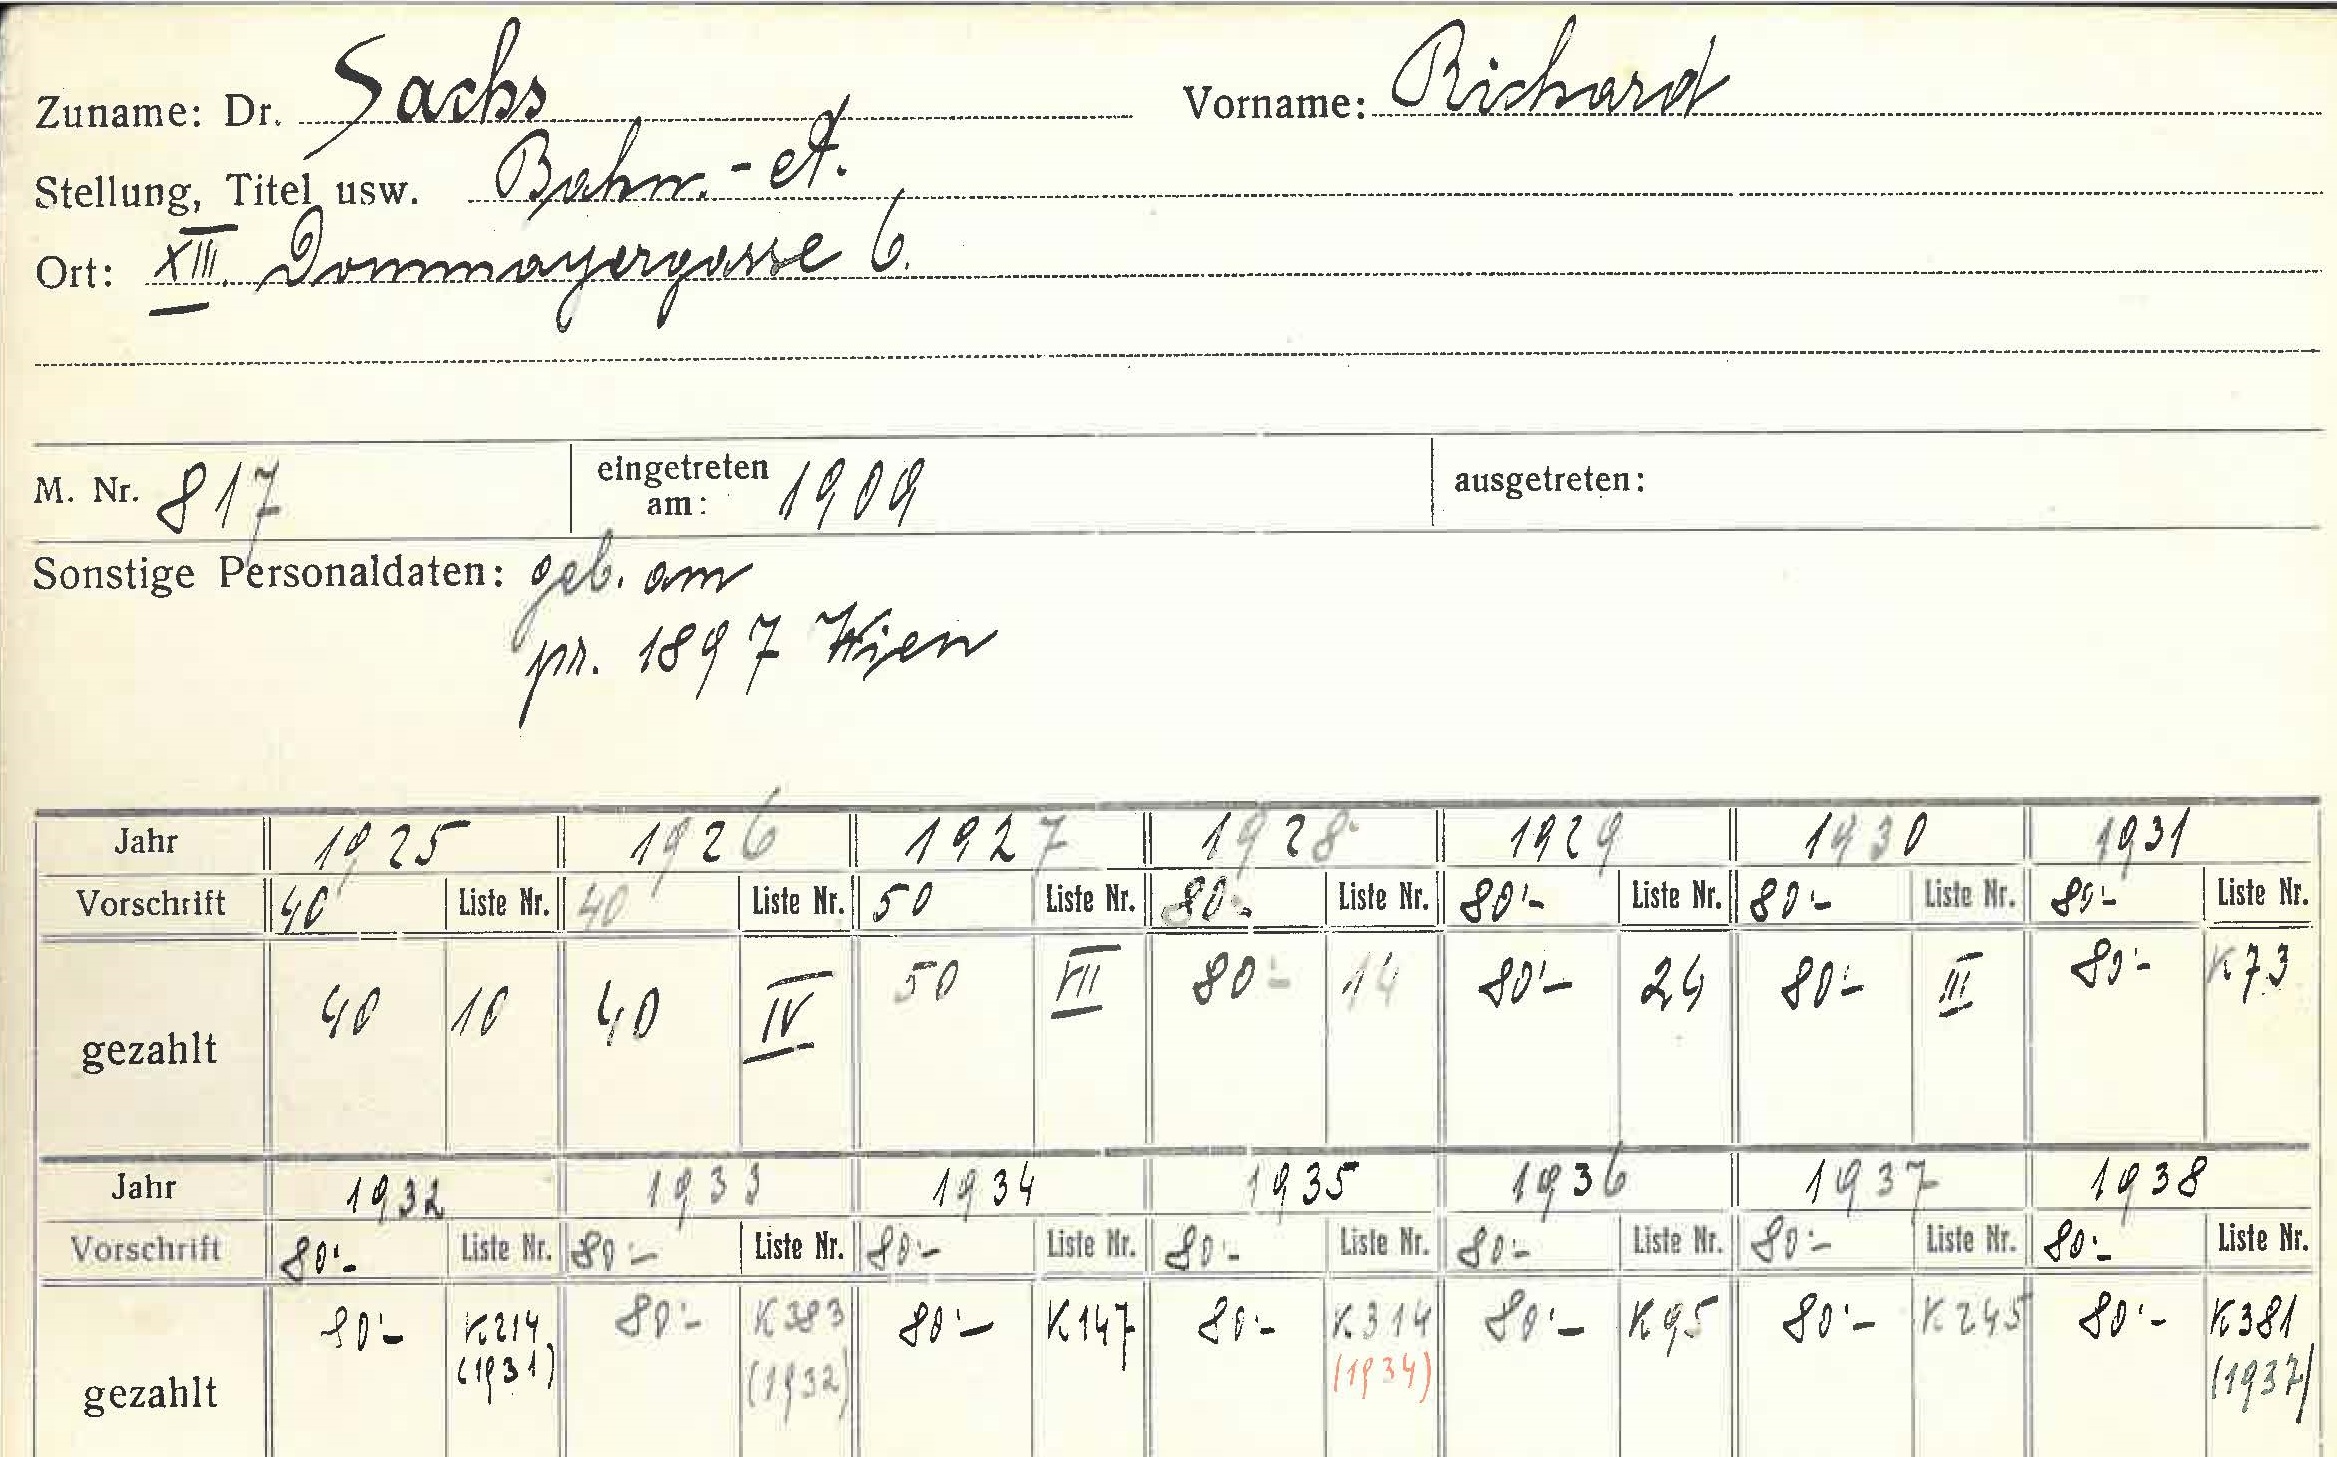 Zuname: Dr. Sachs Vorname: Richard
Stellung, Titel usw. Bahn.-A.
Ort: XIII. Dommayergasse 6.
M. Nr. 817 eingetreten am: 1909 ausgetreten:
Sonstige Personaldaten: geb. am
pr. 1897 Wien
Jahr 1925 1926 1927 1928 1929 1930 1931
Vorschrift 40 Liste Nr. 40 Liste Nr. 50 Liste Nr. 80.- Liste Nr. 80'- Liste Nr. 80'- Liste Nr. 80'- Liste Nr.
gezahlt 40 10 40 IV 50 VII 80'- 14 80'- 24 80'- III 80'- K73
Jahr 1932 1933 1934 1935 1936 1937 1938
Vorschrift 80'- Liste Nr. 80'- Liste Nr. 80'- Liste Nr. 80'- Liste Nr. 80'- Liste Nr. 80'- Liste Nr. 80'- Liste Nr.
gezahlt 80'- K214 (1931) 80'- K383 (1932) 80'- K147 80'- K314 (1934) 80'- K95 80'- K245 80'- K381 (1937)